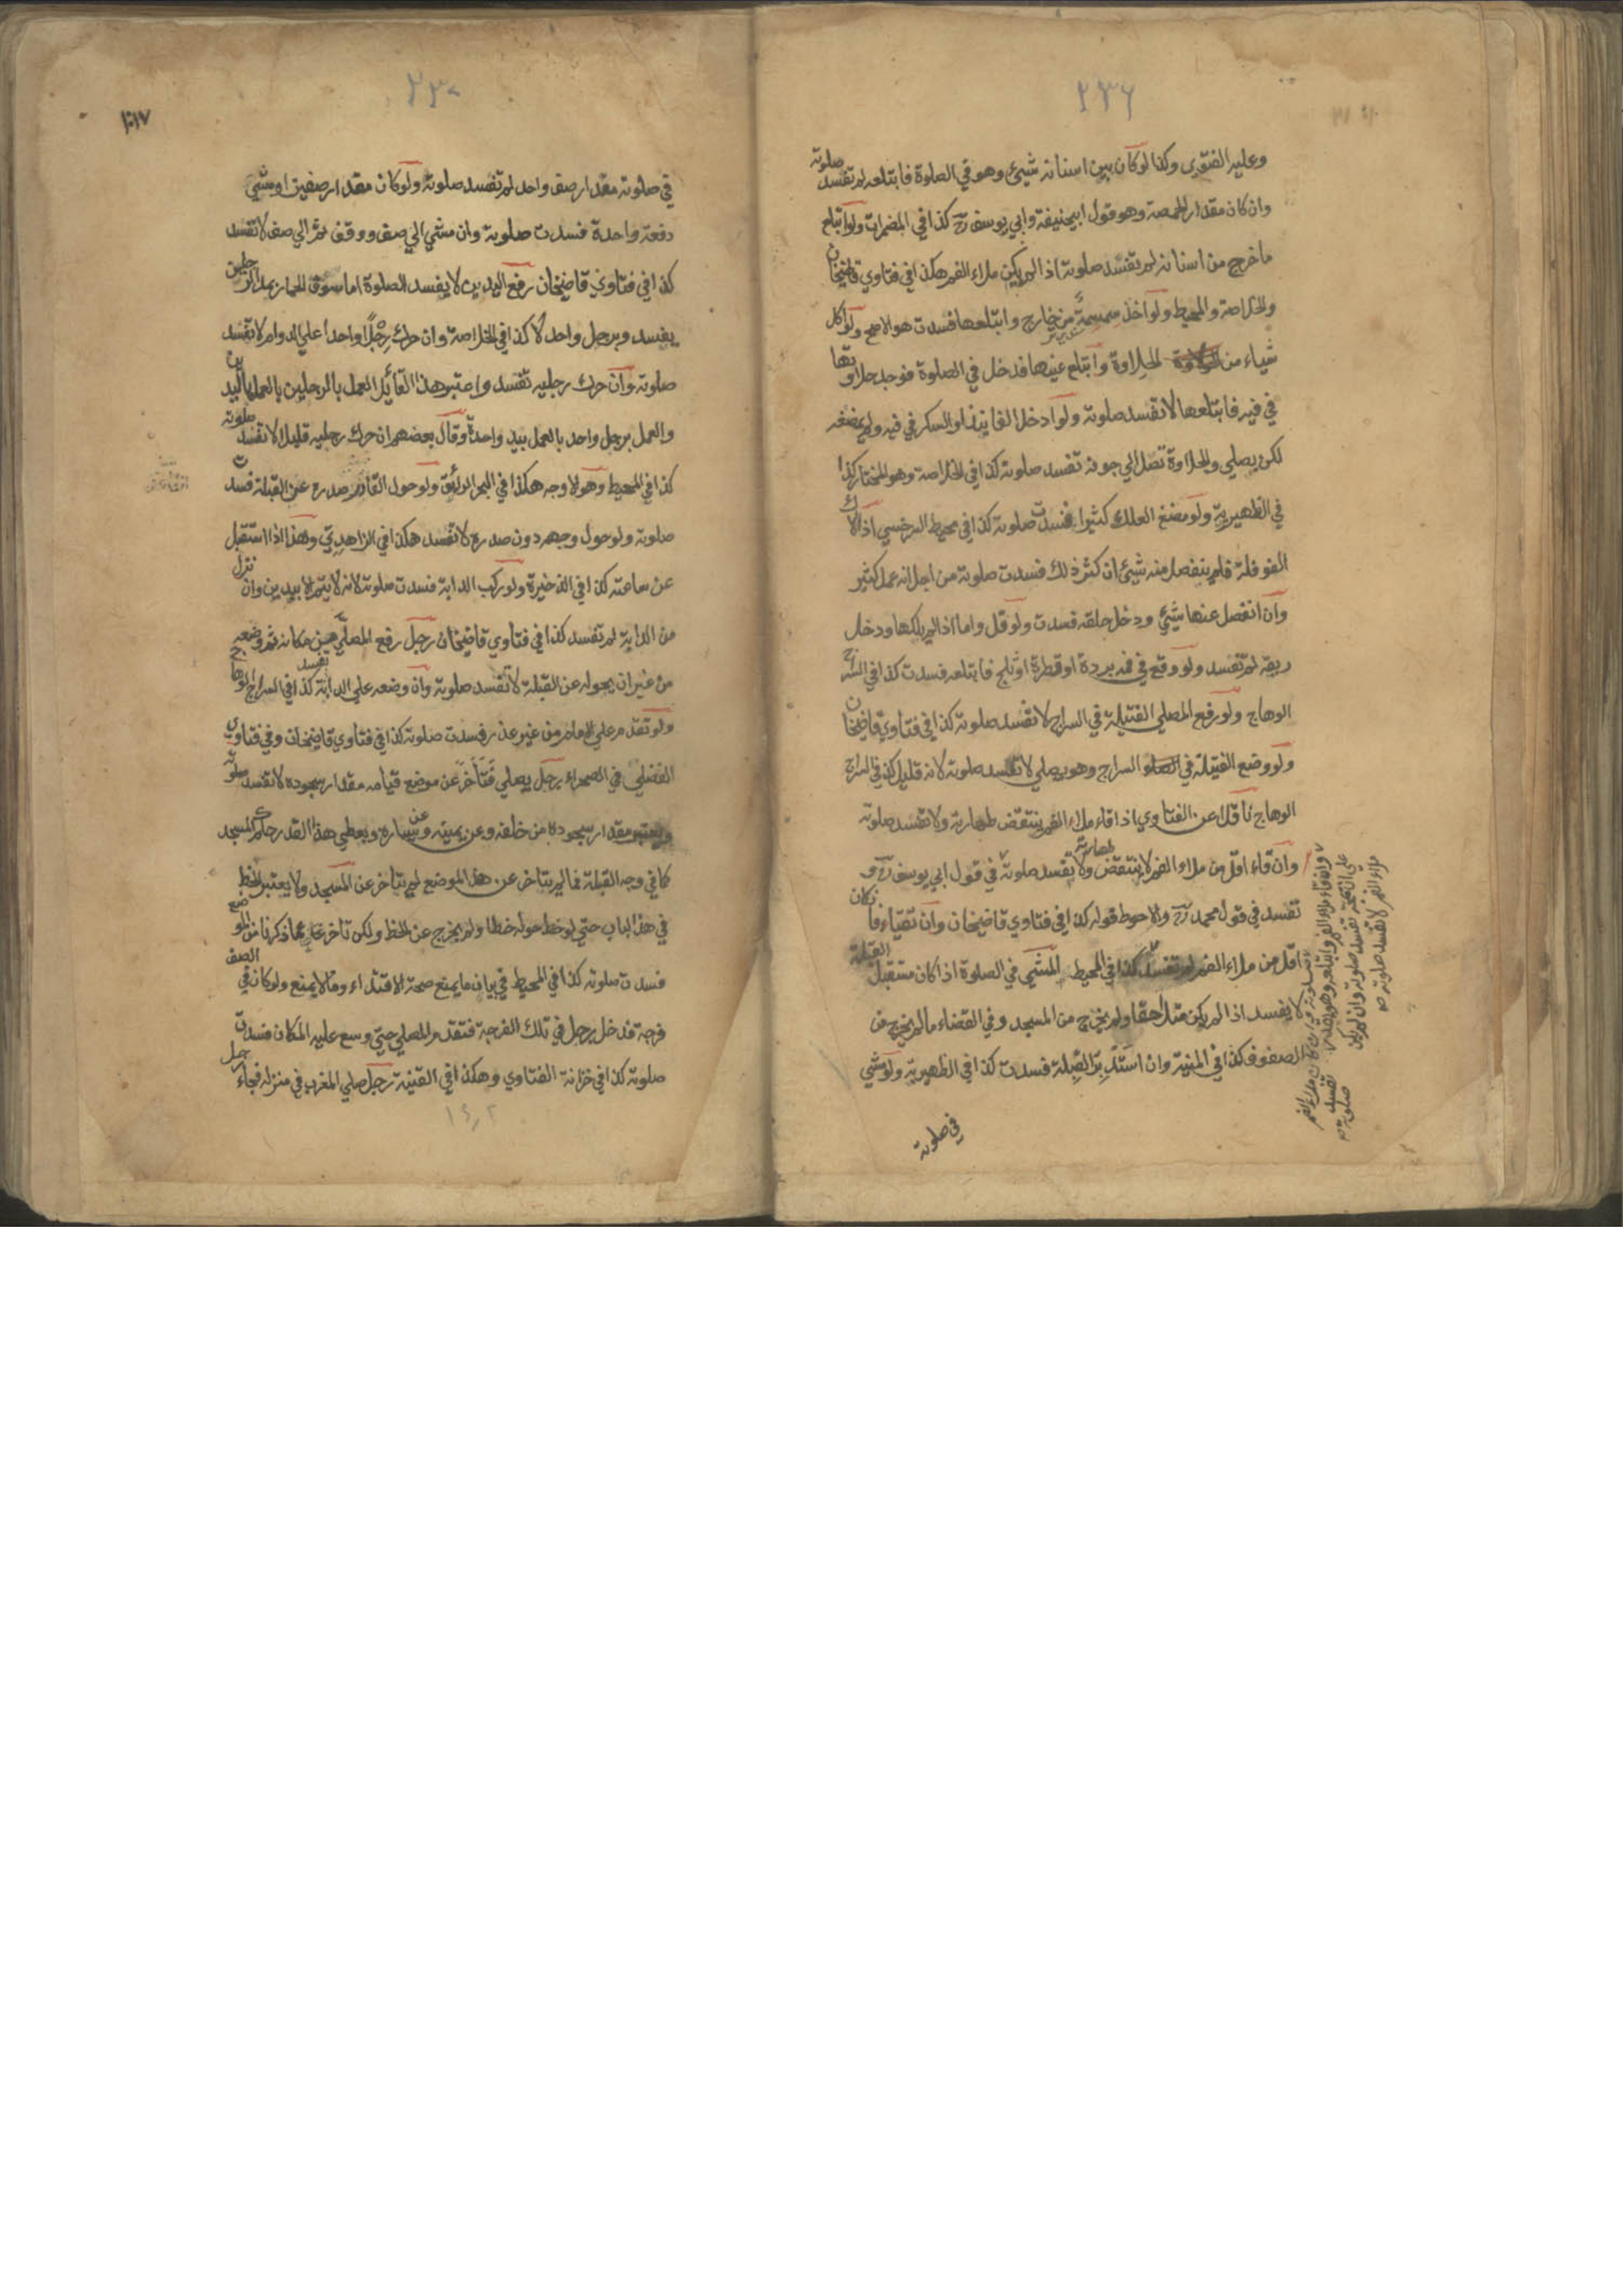 ٢٣٦
وعليه الفتوى وكذا لو كان بين اسنانه شيئ وهو في الصلوة فابتلعه لم تفسد صلوته
وان كان مقدار الحمصة وهو قول ابيحنيفة وابي يوسف رح كذا في المضمرات ولو ابتلع
ما خرج من اسنانه لم يفسد صلوته اذا لم يكن ملاء الفم هكذا في فتاوي قاضيخان
والخلاصة والمحيط ولو اخذ سمسمة من خارج وابتلعها فسدت هو الاصح ولو اكل
شياء من الحلاوة وابتلع عينها فدخل في الصلوة فوجد حلاوتها
في فيه فابتلعها لا تفسد صلوته ولو ادخل الفانيذ او السكر في فيه ولم يمضغه
لكن يصلي والحلاوة تصل الي جوفه تفسد صلوته كذا في الخلاصة وهو المختار كذا
في الظهيرية ولو مضغ العلك كثيرا فسدت صلوته كذا في محيط السرخسي اذا لاك
الفوفلة فلم ينفصل منه شيئ ان كثر ذلك فسدت صلوته من اجل انه عمل كثير
وان انفصل عنها شيئ ودخل حلقه فسدت ولو قل واما اذا لم يلكها ودخل
ريقه لم تفسد ولو وقع في فمه بردة او قطرة او ثلج فابتلعه فسدت كذا في السراج
الوهاج ولو رفع المصلي الفتيلة في السراج لا تفسد صلوته كذا في فتاوي قاضيخان
ولو وضع الفتيلة في السراج وهو يصلي لا تفسد صلوته لانه قليل كذا في السراج
الوهاج ناقلا عن الفتاوي اذا قاء ملاء الفم ينتقض طهارته ولا تفسد صلوته
وان قاء اقل من ملاء الفم لا ينتقض طهارته ولا يفسد صلوته في قول ابي يوسف رح و
تفسد في قول محمد رح والاحوط قوله كذا في فتاوي قاضيخان وان تقياء فان كان
اقل من ملاء الفم لم تفسد كذا في المحيط المشي في الصلوة اذا كان مستقبل القبلة
لا يفسد اذا لم يكن متلاحقا ولم يخرج من المسجد وفي الفضاء ما لم يخرج من
الصفوف كذا في المنية وان استدبر القبلة فسدت كذا في الظهيرية ولو مشي
في صلوته
ملاء الفم لا تفسد صلوته صح
٢٣٧
في صلوته مقدار صف واحد لم تفسد صلوته ولو كان مقدار صفين او مشي
دفعة واحدة فسدت صلوته وان مشي الي صف ووقف ثم الي صف لا تفسد
كذا في فتاوي قاضيخان رفع اليدين لا يفسد الصلوة اما سوق الحمار بمد الرجلين
يفسد وبرجل واحد لا كذا في الخلاصة وان حرك رجلا واحدا علي الدوام لا تفسد
صلوته وان حرك رجليه تفسد واعتبر هذا القائل العمل بالرجلين بالعمل باليدين
والعمل برجل واحد بالعمل بيد واحدة وقال بعضهم ان حرك رجليه قليلا لا تفسد صلوته
كذا في المحيط وهو الاوجه هكذا في البحر الرائق ولو حول القادر صدره عن القبلة فسدت
صلوته ولو حول وجهه دون صدره لا تفسد هكذا في الزاهدي وهذا اذا استقبل
عن ساعته كذا في الذخيرة ولو ركب الدابة فسدت صلوته لانه لا يتم الا بيدين وان نزل
من الدابة لم تفسد كذا في فتاوي قاضيخان رجل رفع المصلي عن مكانه ثم وضعه
من غير ان يحوله عن القبلة لا تفسد صلوته وان وضعه علي الدابة تفسد كذا في السراج الوهاج
ولو تقدم علي الامام من غير عذر فسدت صلوته كذا في فتاوي قاضيخان وفي فتاوي
الفضلي في الصحراء رجل يصلي فتأخر عن موضع قيامه مقدار سجوده لا تفسد صلوته
ويعتبر مقدار سجوده من خلفه وعن يمينه وعن يساره ويعطي هذا القدر حكم المسجد
كما في وجه القبلة فما لم يتاخر عن هذا الموضع لم يتاخر عن المسجد ولا يعتبر الخط
في هذا الباب حتي لو خط حوله خطا ولم يخرج عن الخط ولكن تاخر عما ذكرنا من الموضع
فسدت صلوته كذا في المحيط في بيان ما يمنع صحة الاقتداء وما لا يمنع ولو كان في الصف
فرجة فدخل رجل في تلك الفرجة فتقدم المصلي حتي وسع عليه المكان فسدت
صلوته كذا في خزانة الفتاوي وهكذا في القنية رجل صلي المغرب في منزله فجاء رجل